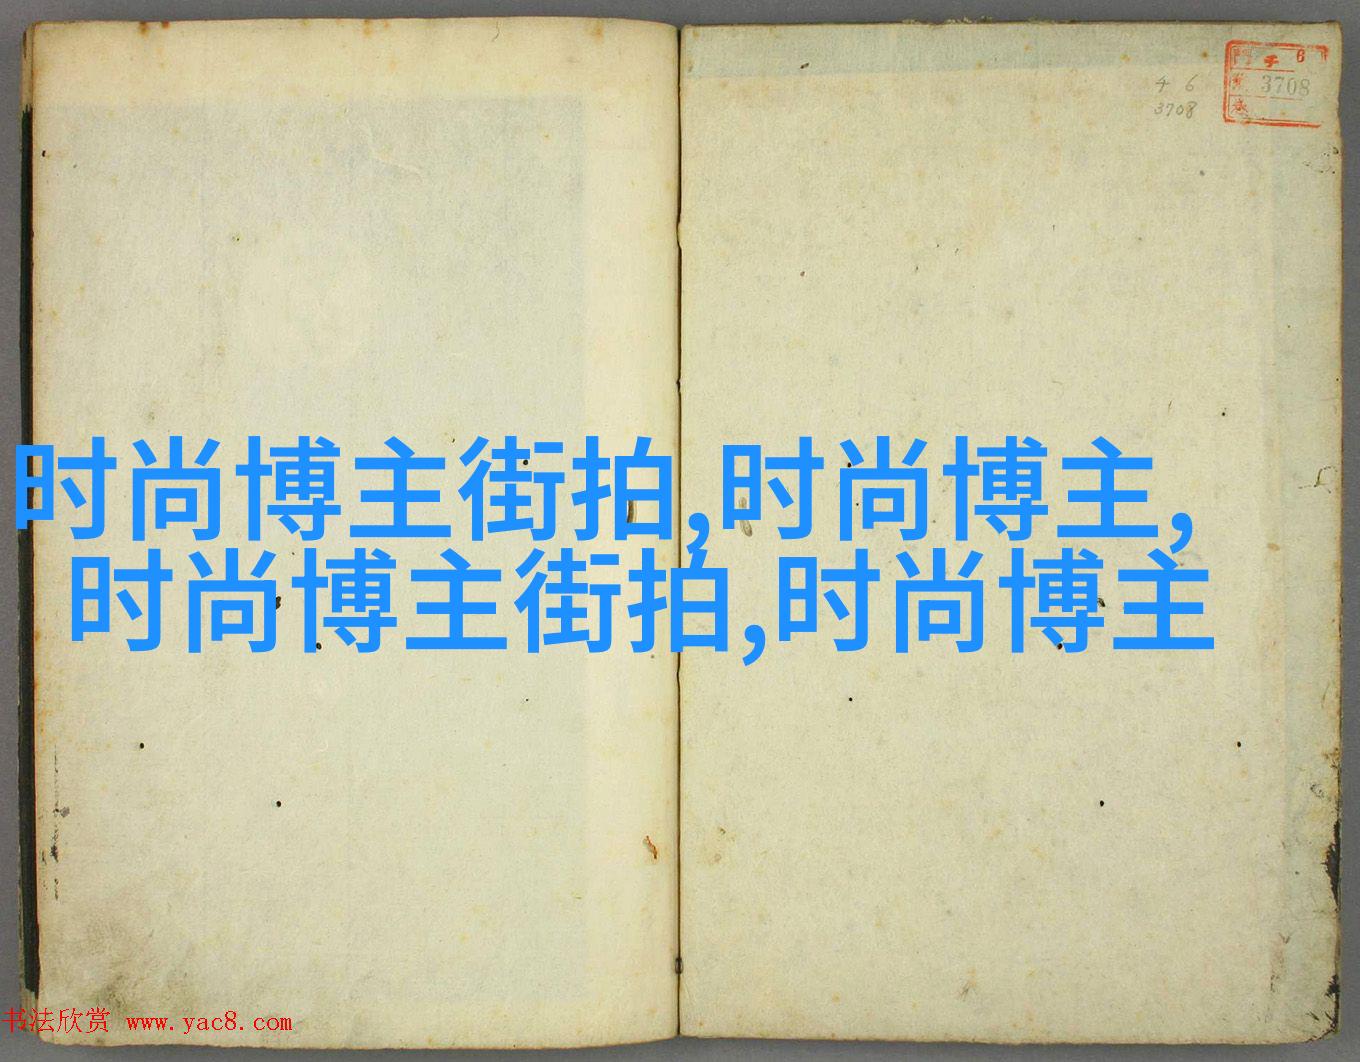 6
チ 6
3708
3708
时尚博主街拍,时尚博主,
时尚博主街拍,时尚博主
书法欣赏 www.yac8.com